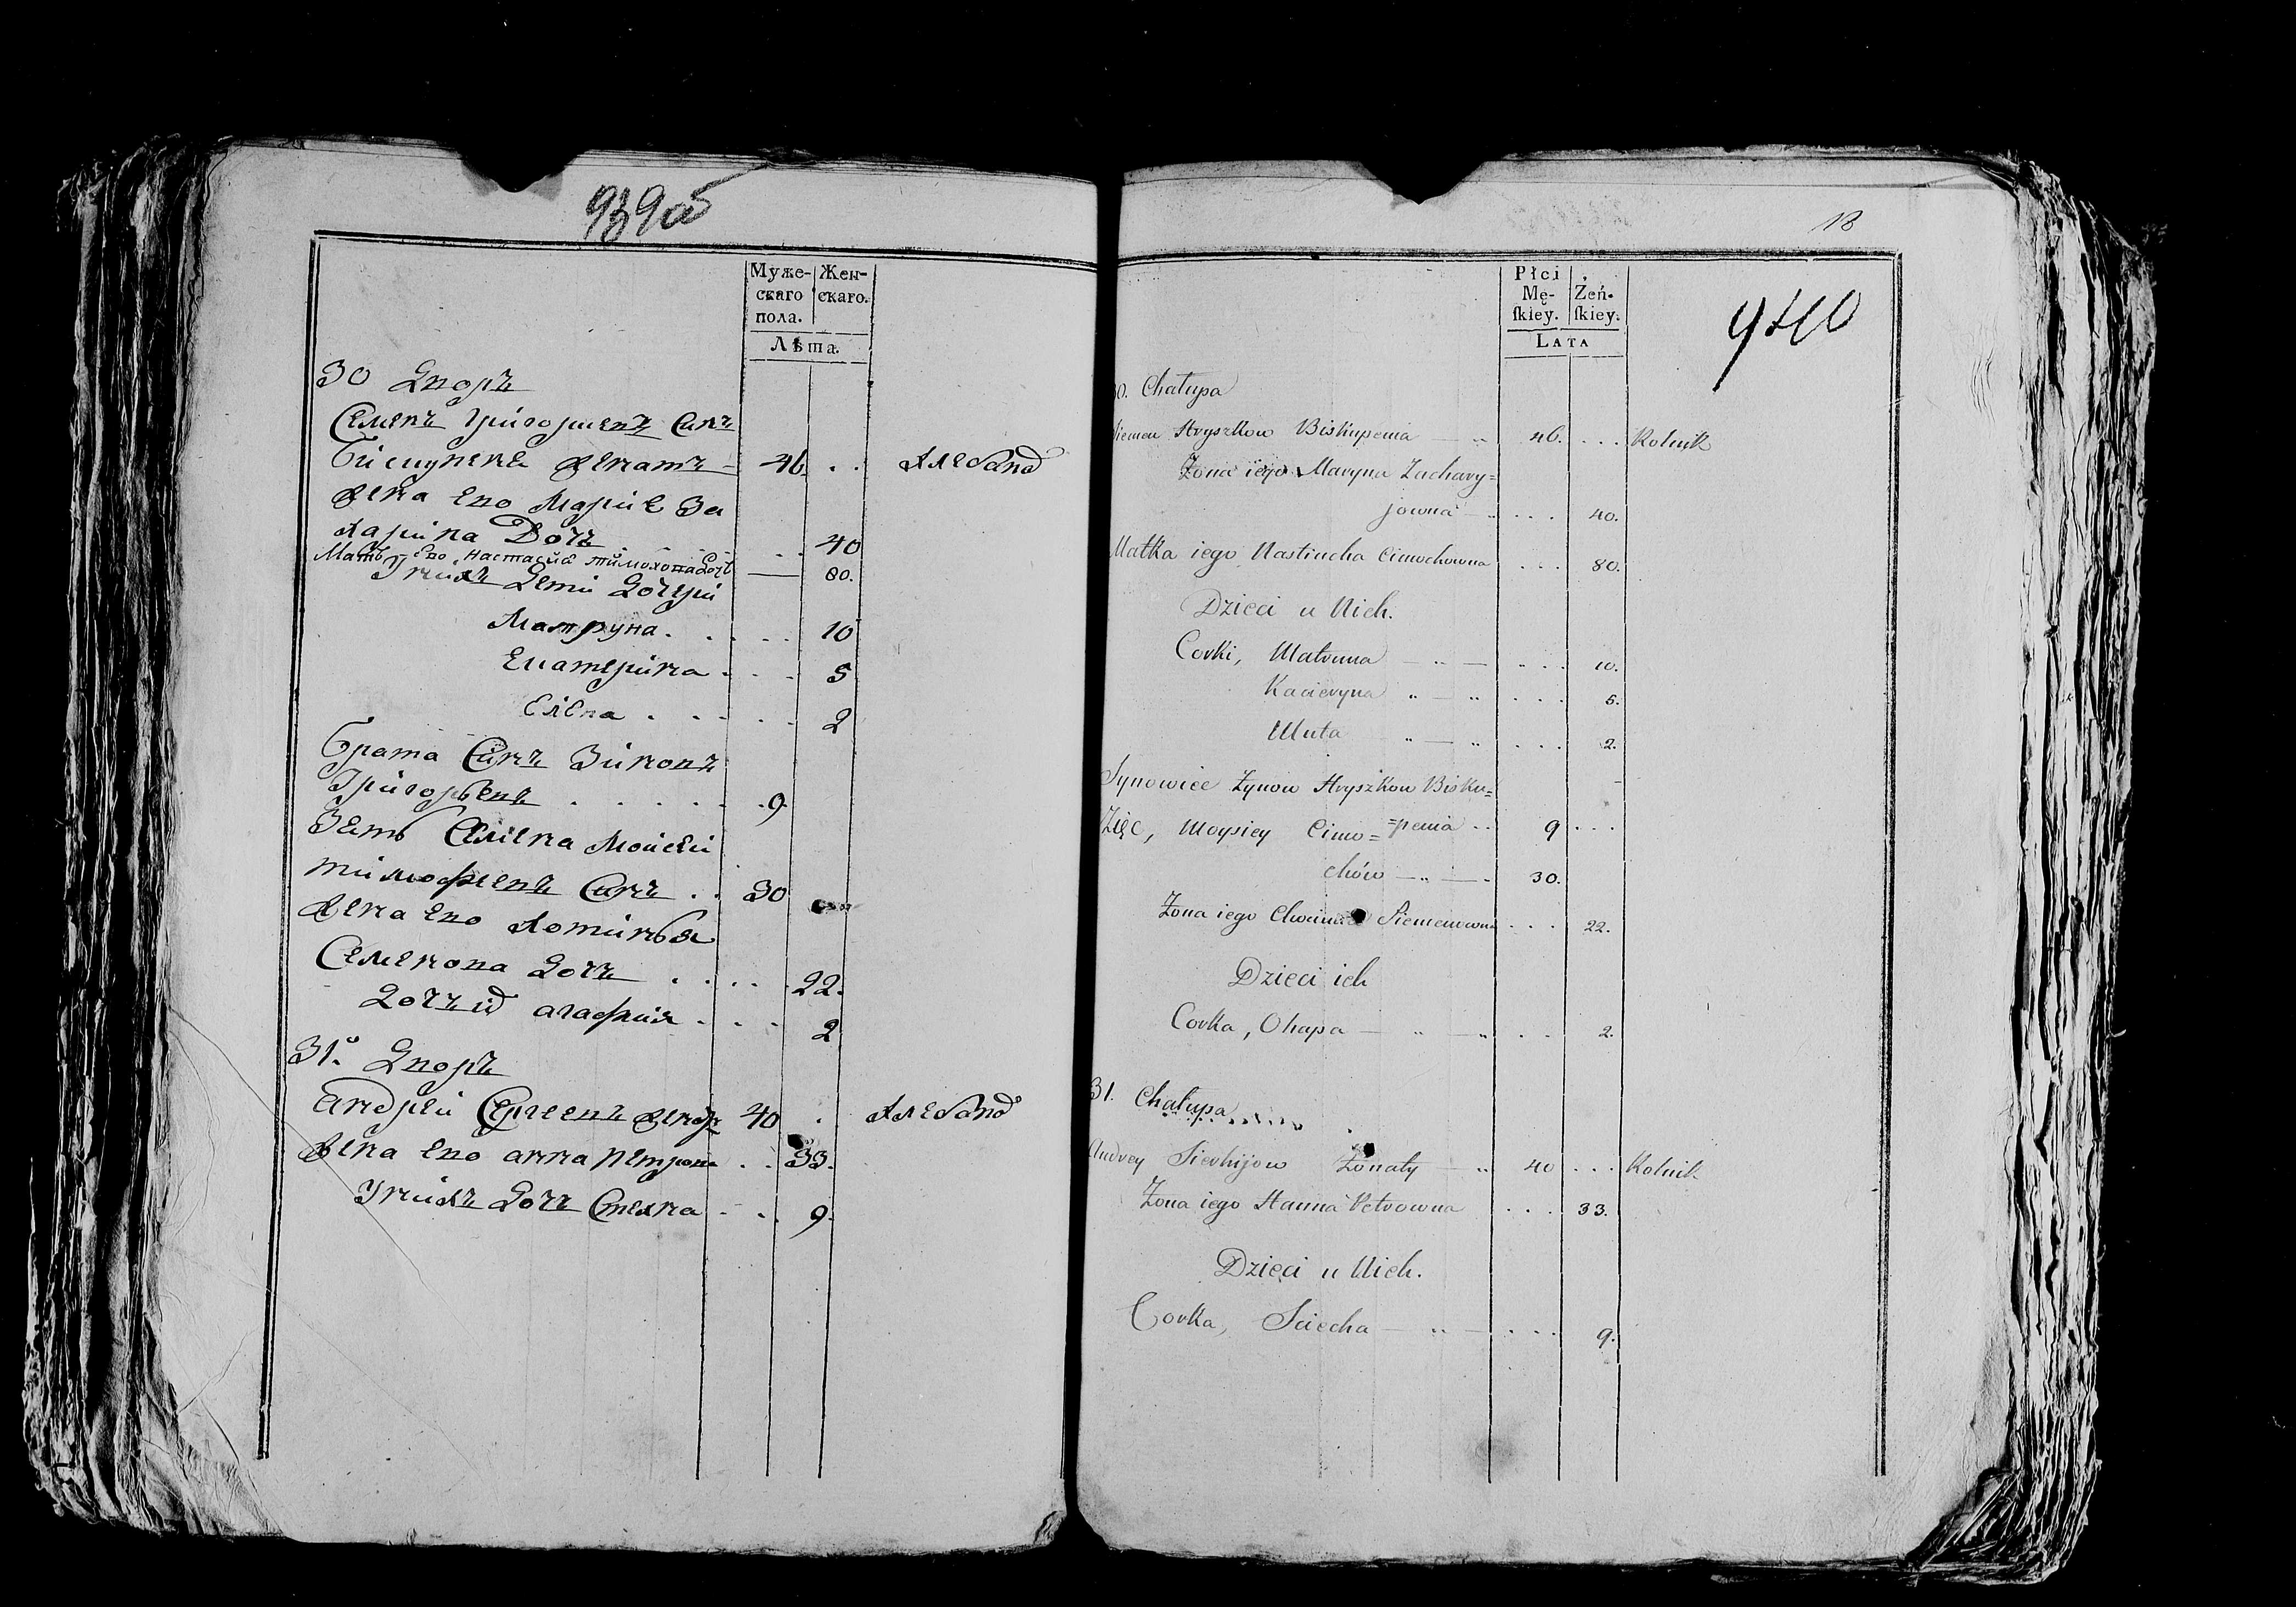 939 об
Муже-
скаго
пола.
Жен-
скаго.
Лѣта.
30 Дворъ
Семенъ Григорьевъ Синъ
Бискупеня женатъ — 46 . . хлебапоб
жена ево Мария За
харина Дочъ . . 40
Мать Ево настасия тимохова Дочъ — 80.
У нихъ Дети Дочери
Матруна . . . . 10
Екатерина . . . 5
Елена . . . . . 2
Брата Синъ Зинонъ
Григорьевъ . . . . . 9.
Зеть Семена Моисеи
тимофеевъ Синъ . . 30
жена ево Хотинья
Семенова Дочъ . . . . 22.
Дочъ их агафия . . . 2
31. Дворъ
андреи Сергеевъ женатъ 40 . хлебапоб
жена ево анна петрова . . 33.
У нихъ Дочъ Стехна . . . 9.
18
9410
Płci
Mę-
ſkiey.
Żeń-
ſkiey.
LATA
30. Chałupa
Siemen Hryszkow Biskupenia — „ 46. . . . Rolnik
Żona iego Maryna Zachary=
jowna — „ . . . 40.
Matka iego Nastiucha Cimochowna . . . 80.
Dzieci u Nich.
Corki, Matruna — „ — . . . 10.
Kacieryna „ — „ . . . 5.
Uluta „ — „ . . . 2.
Synowiec Zynow Hryszkow Bisku=
=penia „ 9 . . .
Zięc, Moysiey Cimo=
chów — „ — 30.
Żona iego Chocimia Siemienowna . . . 22.
Dzieci ich
Corka, Ohapa — „ — „ . . 2.
31. Chałupa
Andrey Sierhijow Żonaty — „ 40 . . . Rolnik
Żona iego Hanna Petrowna . . . 33.
Dzieci u Nich.
Corka, Sciecha — „ — . . . 9.